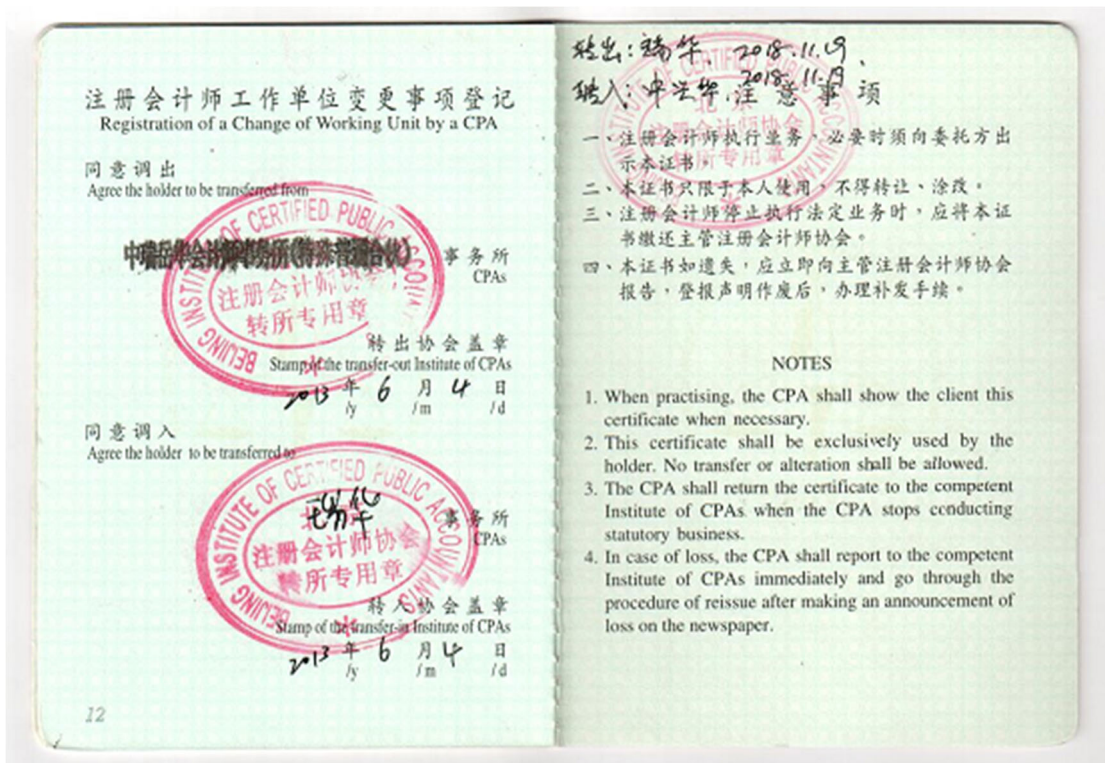 注册会计师工作单位变更事项登记
Registration of a Change of Working Unit by a CPA
同意调出
Agree the holder to be transferred from
中瑞岳华会计师事务所(特殊普通合伙) 事务所
CPAs
BEIJING INSTITUTE OF CERTIFIED PUBLIC ACCOUNTANTS
注册会计师协会
转所专用章
转出协会盖章
Stamp of the transfer-out Institute of CPAs
2013 年 6 月 4 日
/y /m /d
同意调入
Agree the holder to be transferred to
瑞华 事务所
CPAs
BEIJING INSTITUTE OF CERTIFIED PUBLIC ACCOUNTANTS
北京
注册会计师协会
转所专用章
转入协会盖章
Stamp of the transfer-in Institute of CPAs
2013 年 6 月 4 日
/y /m /d
12
转出:瑞华 2018.11.19
转入:中兴华 2018.11.19
注意事项
BEIJING INSTITUTE OF CERTIFIED PUBLIC ACCOUNTANTS
北京
注册会计师协会
转所专用章
一、注册会计师执行业务,必要时须向委托方出
示本证书。
二、本证书只限于本人使用,不得转让、涂改。
三、注册会计师停止执行法定业务时,应将本证
书缴还主管注册会计师协会。
四、本证书如遗失,应立即向主管注册会计师协会
报告,登报声明作废后,办理补发手续。
NOTES
1. When practising, the CPA shall show the client this
certificate when necessary.
2. This certificate shall be exclusively used by the
holder. No transfer or alteration shall be allowed.
3. The CPA shall return the certificate to the competent
Institute of CPAs when the CPA stops conducting
statutory business.
4. In case of loss, the CPA shall report to the competent
Institute of CPAs immediately and go through the
procedure of reissue after making an announcement of
loss on the newspaper.